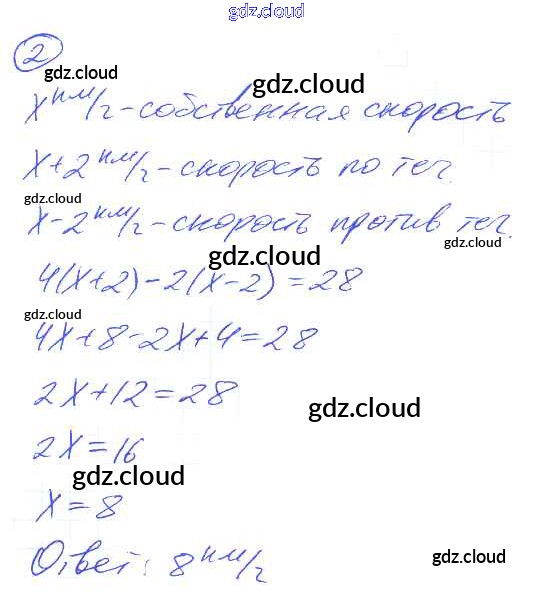 gdz.cloud
2
gdz.cloud
gdz.cloud
x км/ч - собственная скорость
x+2 км/ч - скорость по теч.
gdz.cloud
x-2 км/ч - скорость против теч.
gdz.cloud
gdz.cloud
4(x+2)-2(x-2)=28
gdz.cloud
4x+8-2x+4=28
2x+12=28
gdz.cloud
2x=16
gdz.cloud
x=8
Ответ: 8 км/ч
gdz.cloud